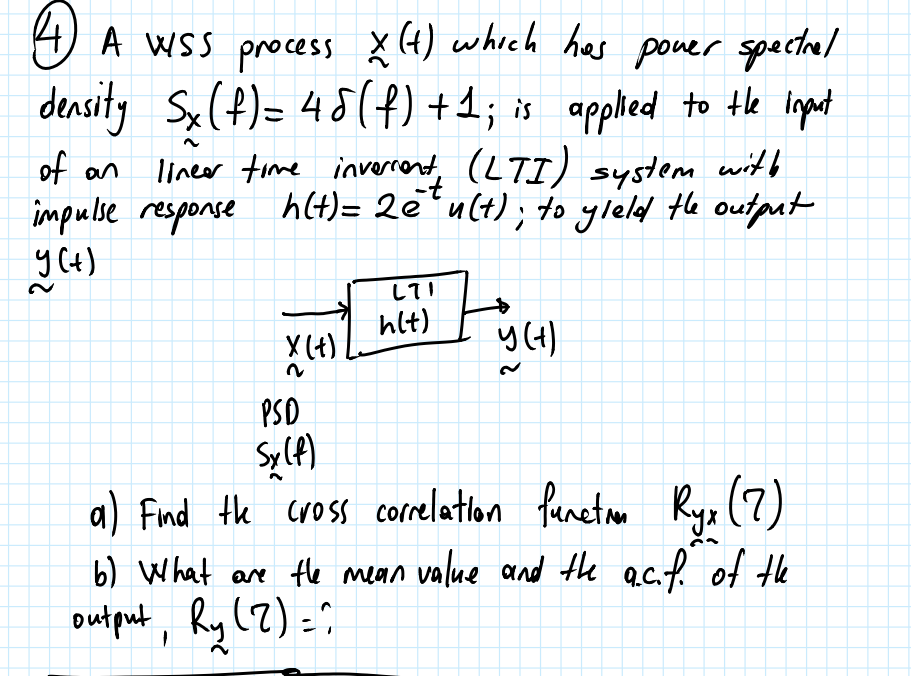 4 A WSS process x(t) which has power spectral
density Sx(f) = 4δ(f) + 1; is applied to the input
of an linear time invarıant, (LTI) system with
impulse response h(t) = 2e^-t u(t); to yield the output
y(t)
LTI
h(t)
x(t)
y(t)
PSD
Sx(f)
a) Find the cross correlation function Ryx(τ)
b) What are the mean value and the a.c.f. of the
output, Ry(τ) = ?